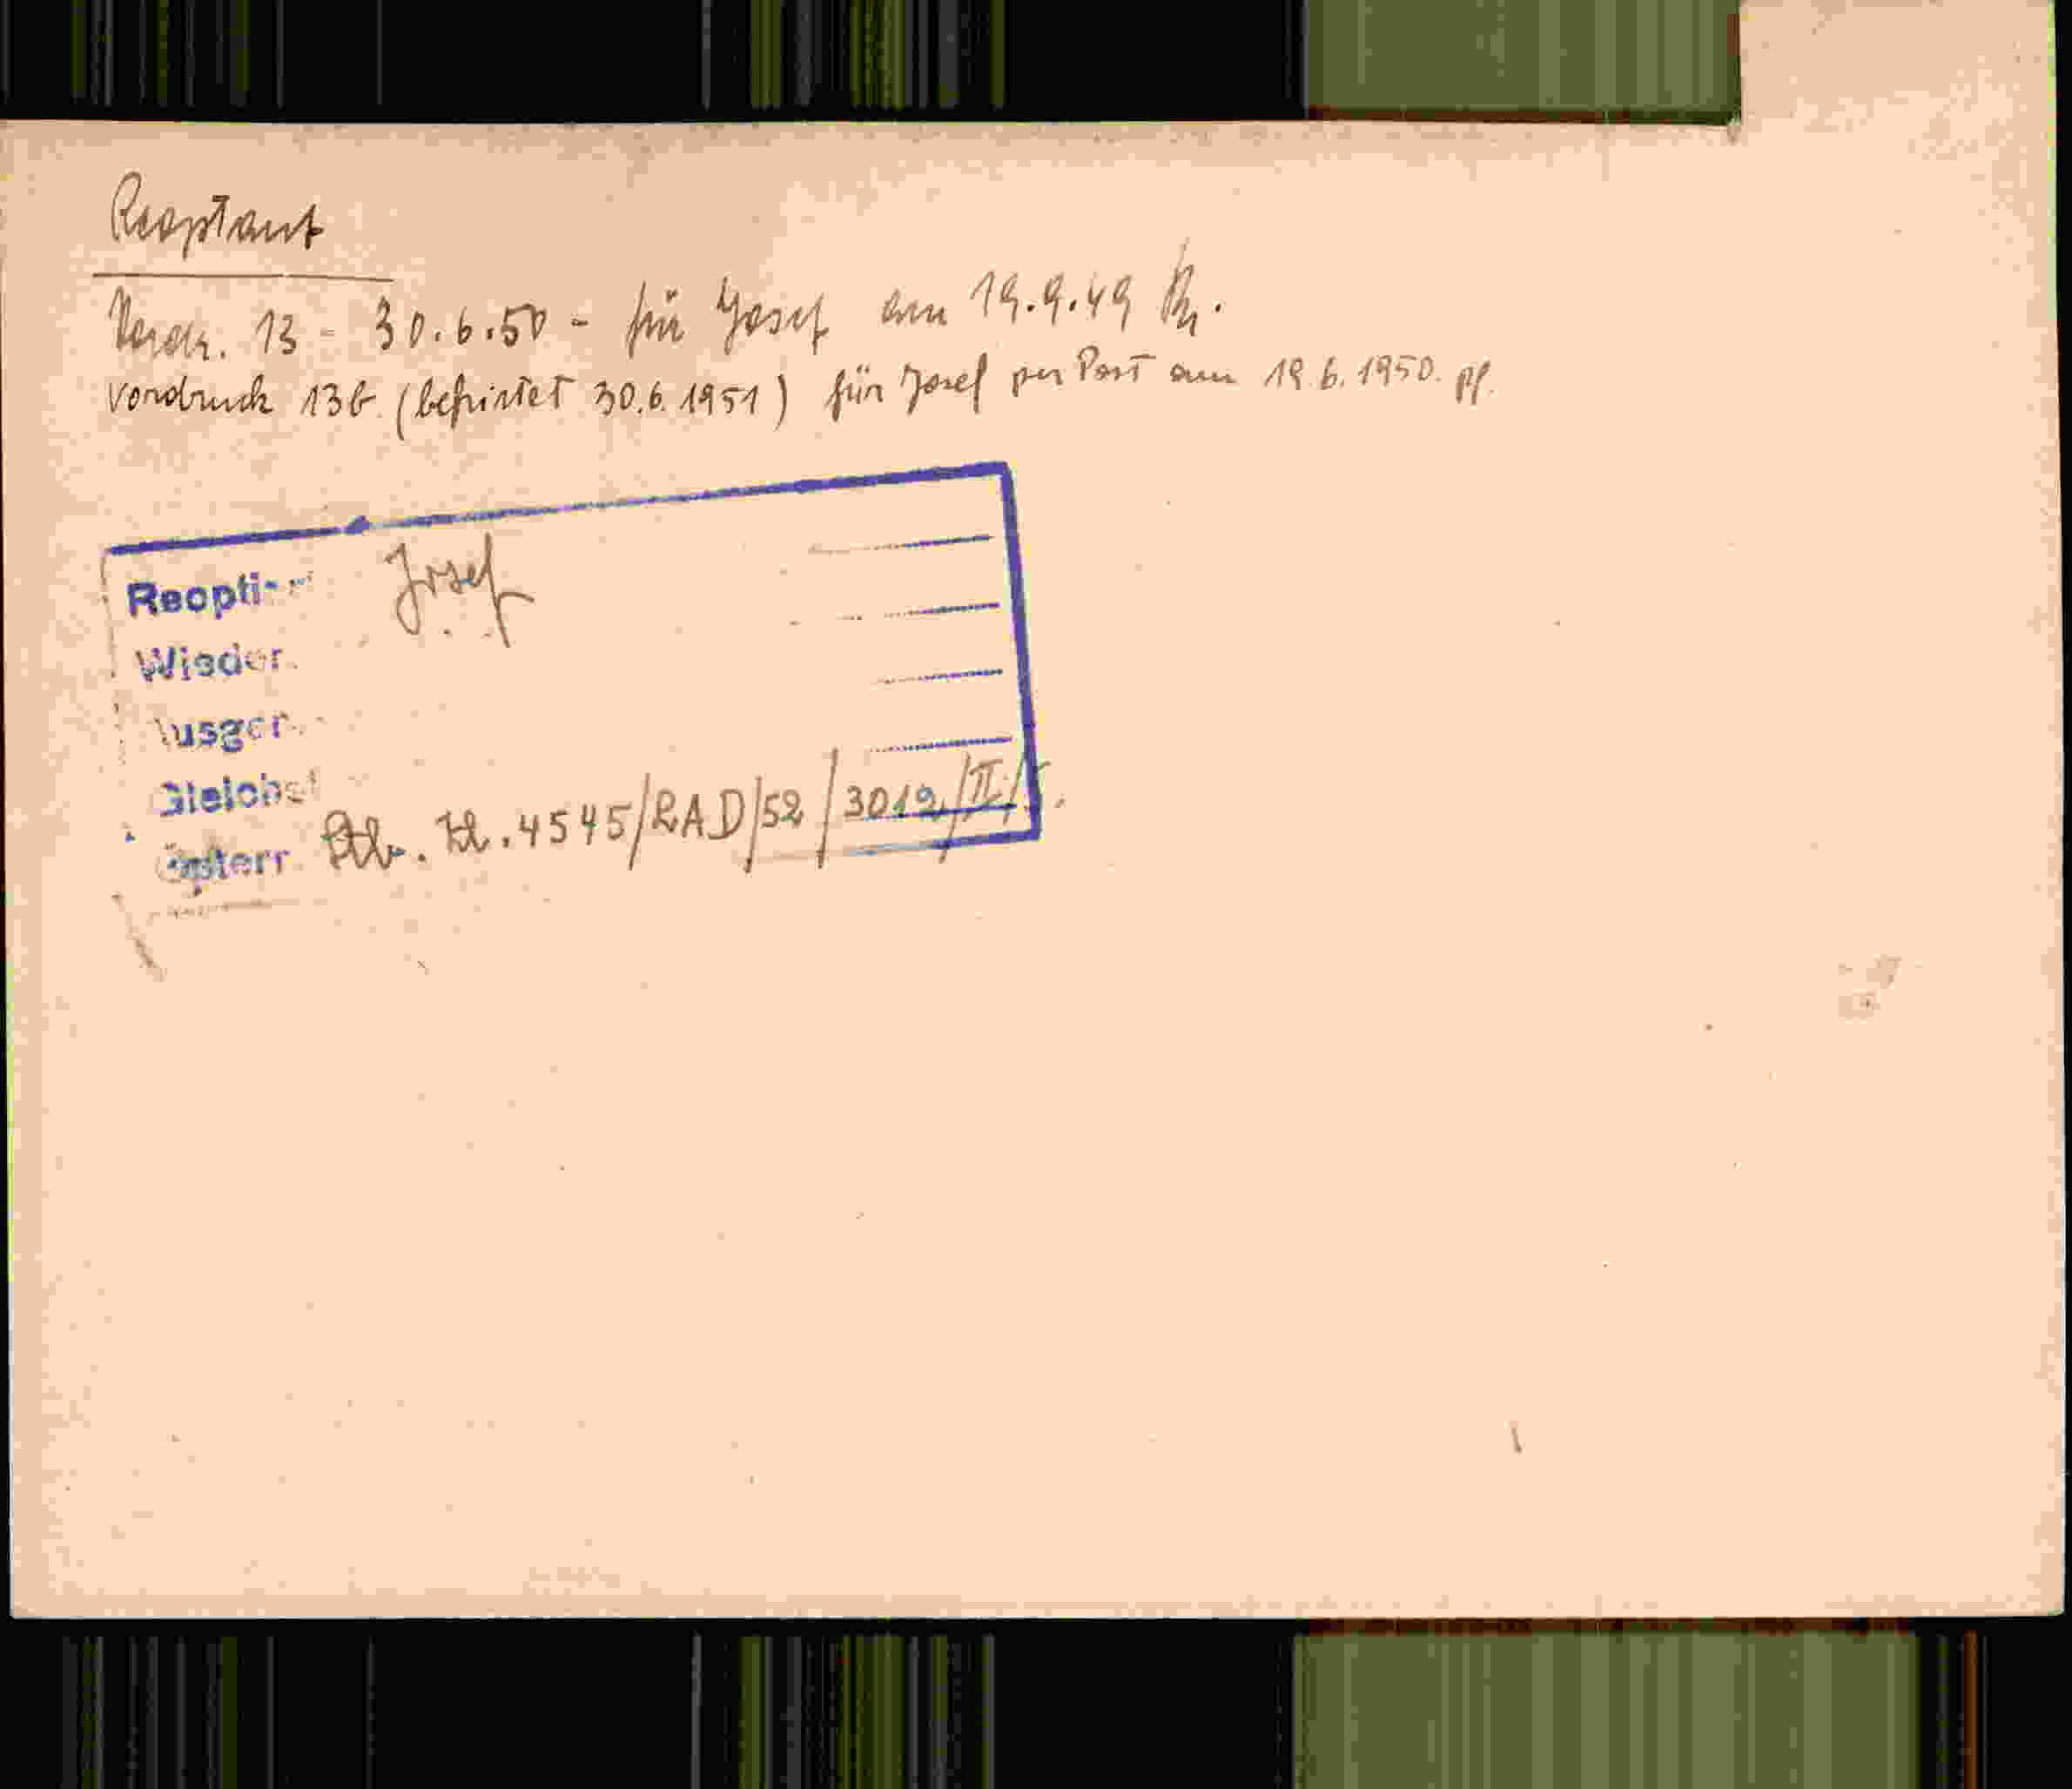 Reoptant
Vordr. 13 - 30.6.50 - für Josef am 19.9.49
Vordruck 13b (befristet 30.6.1951) für Josef per Post am 19.6.1950. pf.
Reopti Josef
Wieder
Ausger
Gleichst
Österr Stb. Zl. 4545/RAD/52/3019/II/